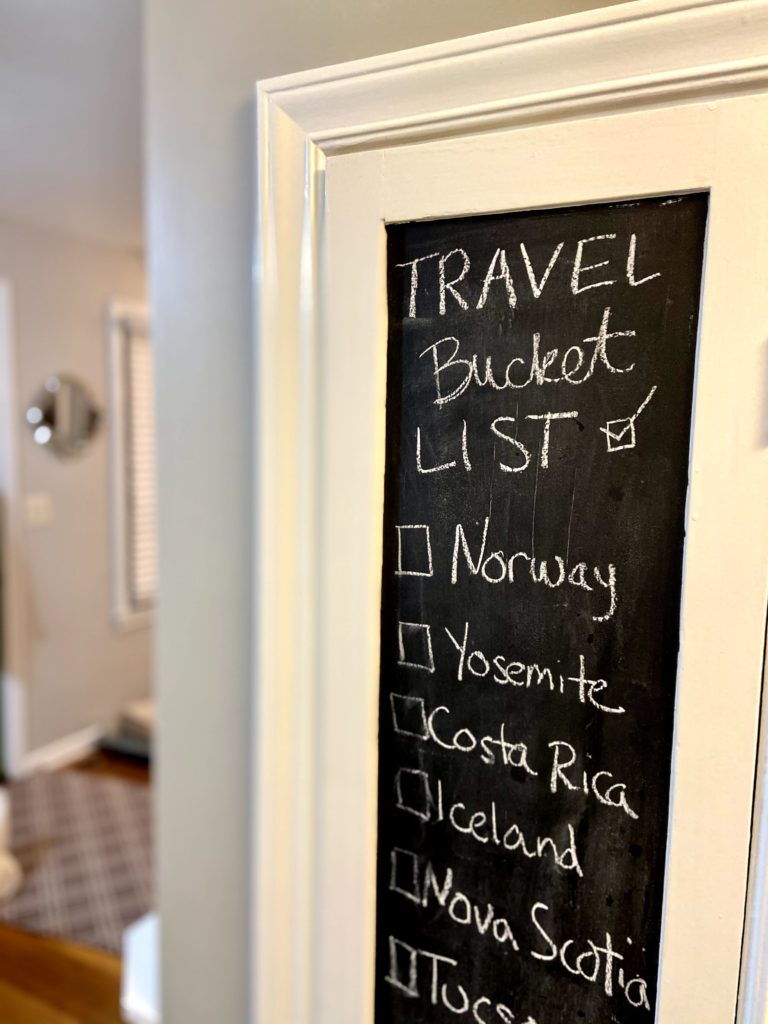 TRAVEL
Bucket
LIST
Norway
Yosemite
Costa Rica
Iceland
Nova Scotia